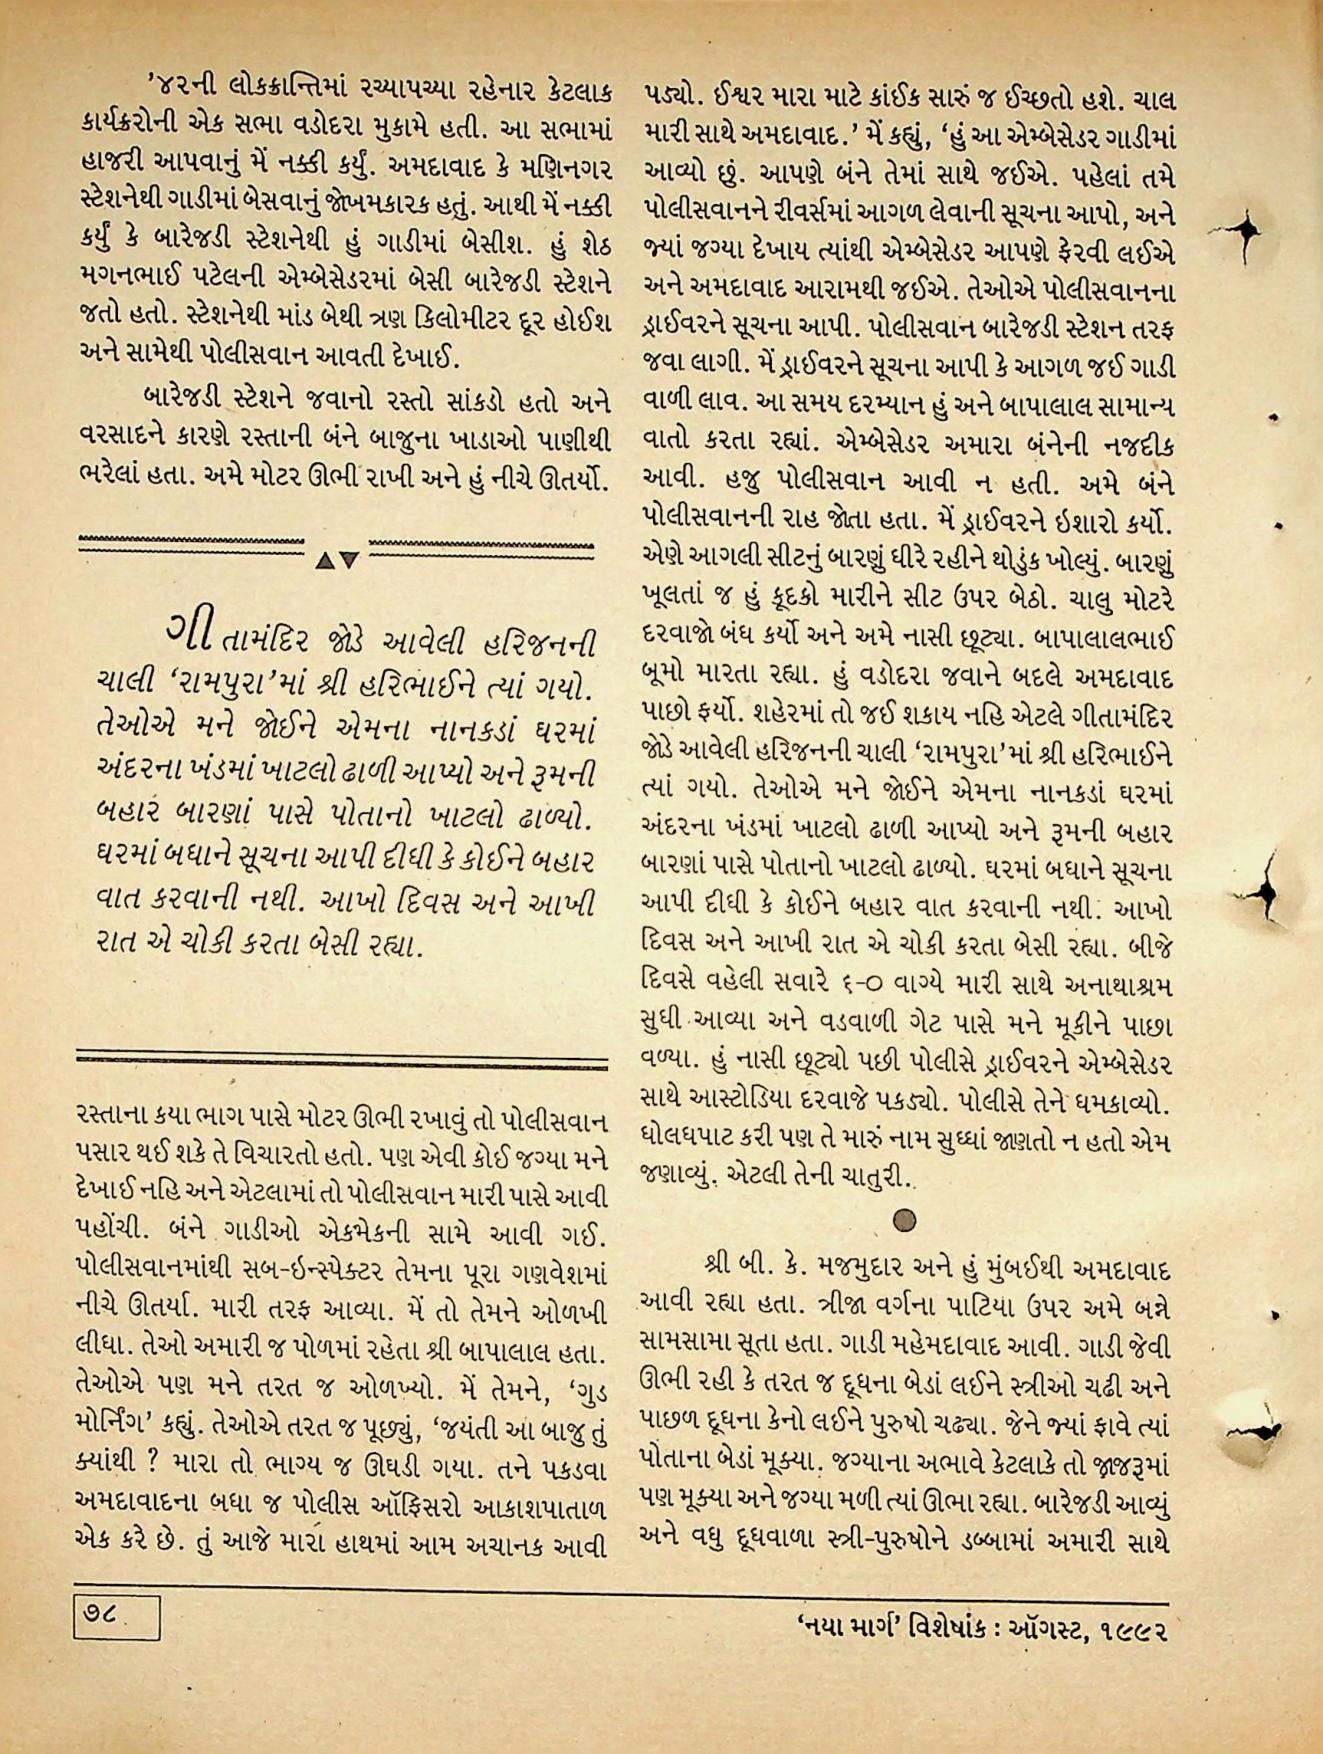 '૪૨ની લોકક્રાન્તિમાં રચ્યાપચ્યા રહેનાર કેટલાક
કાર્યક્રરોની એક સભા વડોદરા મુકામે હતી. આ સભામાં
હાજરી આપવાનું મેં નક્કી કર્યું. અમદાવાદ કે મણિનગર
સ્ટેશનેથી ગાડીમાં બેસવાનું જોખમકારક હતું. આથી મેં નક્કી
કર્યું કે બારેજડી સ્ટેશનેથી હું ગાડીમાં બેસીશ. હું શેઠ
મગનભાઈ પટેલની એમ્બેસેડરમાં બેસી બારેજડી સ્ટેશને
જતો હતો. સ્ટેશનેથી માંડ બેથી ત્રણ કિલોમીટર દૂર હોઈશ
અને સામેથી પોલીસવાન આવતી દેખાઈ.
બારેજડી સ્ટેશને જવાનો રસ્તો સાંકડો હતો અને
વરસાદને કારણે રસ્તાની બંને બાજુના ખાડાઓ પાણીથી
ભરેલાં હતા. અમે મોટર ઊભી રાખી અને હું નીચે ઊતર્યો.
ગીતામંદિર જોડે આવેલી હરિજનની
ચાલી ‘રામપુરા’માં શ્રી હરિભાઈને ત્યાં ગયો.
તેઓએ મને જોઈને એમના નાનકડાં ઘરમાં
અંદરના ખંડમાં ખાટલો ઢાળી આપ્યો અને રૂમની
બહાર બારણાં પાસે પોતાનો ખાટલો ઢાળ્યો.
ઘરમાં બધાને સૂચના આપી દીધી કે કોઈને બહાર
વાત કરવાની નથી. આખો દિવસ અને આખી
રાત એ ચોકી કરતા બેસી રહ્યા.
રસ્તાના કયા ભાગ પાસે મોટર ઊભી રખાવું તો પોલીસવાન
પસાર થઈ શકે તે વિચારતો હતો. પણ એવી કોઈ જગ્યા મને
દેખાઈ નહિ અને એટલામાં તો પોલીસવાન મારી પાસે આવી
પહોંચી. બંને ગાડીઓ એકમેકની સામે આવી ગઈ.
પોલીસવાનમાંથી સબ-ઇન્સ્પેક્ટર તેમના પૂરા ગણવેશમાં
નીચે ઊતર્યા. મારી તરફ આવ્યા. મેં તો તેમને ઓળખી
લીધા. તેઓ અમારી જ પોળમાં રહેતા શ્રી બાપાલાલ હતા.
તેઓએ પણ મને તરત જ ઓળખ્યો. મેં તેમને, ‘ગુડ
મોર્નિંગ’ કહ્યું. તેઓએ તરત જ પૂછ્યું, ‘જયંતી આ બાજુ તું
ક્યાંથી ? મારા તો ભાગ્ય જ ઊઘડી ગયા. તને પકડવા
અમદાવાદના બધા જ પોલીસ ઑફિસરો આકાશપાતાળ
એક કરે છે. તું આજે મારા હાથમાં આમ અચાનક આવી
પડ્યો. ઈશ્વર મારા માટે કાંઈક સારું જ ઈચ્છતો હશે. ચાલ
મારી સાથે અમદાવાદ.’ મેં કહ્યું, ‘હું આ એમ્બેસેડર ગાડીમાં
આવ્યો છું. આપણે બંને તેમાં સાથે જઈએ. પહેલાં તમે
પોલીસવાનને રીવર્સમાં આગળ લેવાની સૂચના આપો, અને
જ્યાં જગ્યા દેખાય ત્યાંથી એમ્બેસેડર આપણે ફેરવી લઈએ
અને અમદાવાદ આરામથી જઈએ. તેઓએ પોલીસવાનના
ડ્રાઈવરને સૂચના આપી. પોલીસવાન બારેજડી સ્ટેશન તરફ
જવા લાગી. મેં ડ્રાઈવરને સૂચના આપી કે આગળ જઈ ગાડી
વાળી લાવ. આ સમય દરમ્યાન હું અને બાપાલાલ સામાન્ય
વાતો કરતા રહ્યાં. એમ્બેસેડર અમારા બંનેની નજદીક
આવી. હજુ પોલીસવાન આવી ન હતી. અમે બંને
પોલીસવાનની રાહ જોતા હતા. મેં ડ્રાઈવરને ઇશારો કર્યો.
એણે આગલી સીટનું બારણું ધીરે રહીને થોડુંક ખોલ્યું. બારણું
ખૂલતાં જ હું કૂદકો મારીને સીટ ઉપર બેઠો. ચાલુ મોટરે
દરવાજો બંધ કર્યો અને અમે નાસી છૂટ્યા. બાપાલાલભાઈ
બૂમો મારતા રહ્યા. હું વડોદરા જવાને બદલે અમદાવાદ
પાછો ફર્યો. શહેરમાં તો જઈ શકાય નહિ એટલે ગીતામંદિર
જોડે આવેલી હરિજનની ચાલી ‘રામપુરા’માં શ્રી હરિભાઈને
ત્યાં ગયો. તેઓએ મને જોઈને એમના નાનકડાં ઘરમાં
અંદરના ખંડમાં ખાટલો ઢાળી આપ્યો અને રૂમની બહાર
બારણાં પાસે પોતાનો ખાટલો ઢાળ્યો. ઘરમાં બધાને સૂચના
આપી દીધી કે કોઈને બહાર વાત કરવાની નથી. આખો
દિવસ અને આખી રાત એ ચોકી કરતા બેસી રહ્યા. બીજે
દિવસે વહેલી સવારે ૬-૦ વાગ્યે મારી સાથે અનાથાશ્રમ
સુધી આવ્યા અને વડવાળી ગેટ પાસે મને મૂકીને પાછા
વળ્યા. હું નાસી છૂટ્યો પછી પોલીસે ડ્રાઈવરને એમ્બેસેડર
સાથે આસ્ટોડિયા દરવાજે પકડ્યો. પોલીસે તેને ધમકાવ્યો.
ધોલધપાટ કરી પણ તે મારું નામ સુધ્ધાં જાણતો ન હતો એમ
જણાવ્યું. એટલી તેની ચાતુરી.
શ્રી બી. કે. મજમુદાર અને હું મુંબઈથી અમદાવાદ
આવી રહ્યા હતા. ત્રીજા વર્ગના પાટિયા ઉપર અમે બન્ને
સામસામા સૂતા હતા. ગાડી મહેમદાવાદ આવી. ગાડી જેવી
ઊભી રહી કે તરત જ દૂધના બેડાં લઈને સ્ત્રીઓ ચઢી અને
પાછળ દૂધના કેનો લઈને પુરુષો ચઢ્યા. જેને જ્યાં ફાવે ત્યાં
પોતાના બેડાં મૂક્યા. જગ્યાના અભાવે કેટલાકે તો જાજરૂમાં
પણ મૂક્યા અને જગ્યા મળી ત્યાં ઊભા રહ્યા. બારેજડી આવ્યું
અને વધુ દૂધવાળા સ્ત્રી-પુરુષોને ડબ્બામાં અમારી સાથે
૭૮
‘નયા માર્ગ’ વિશેષાંક : ઑગસ્ટ, ૧૯૯૨